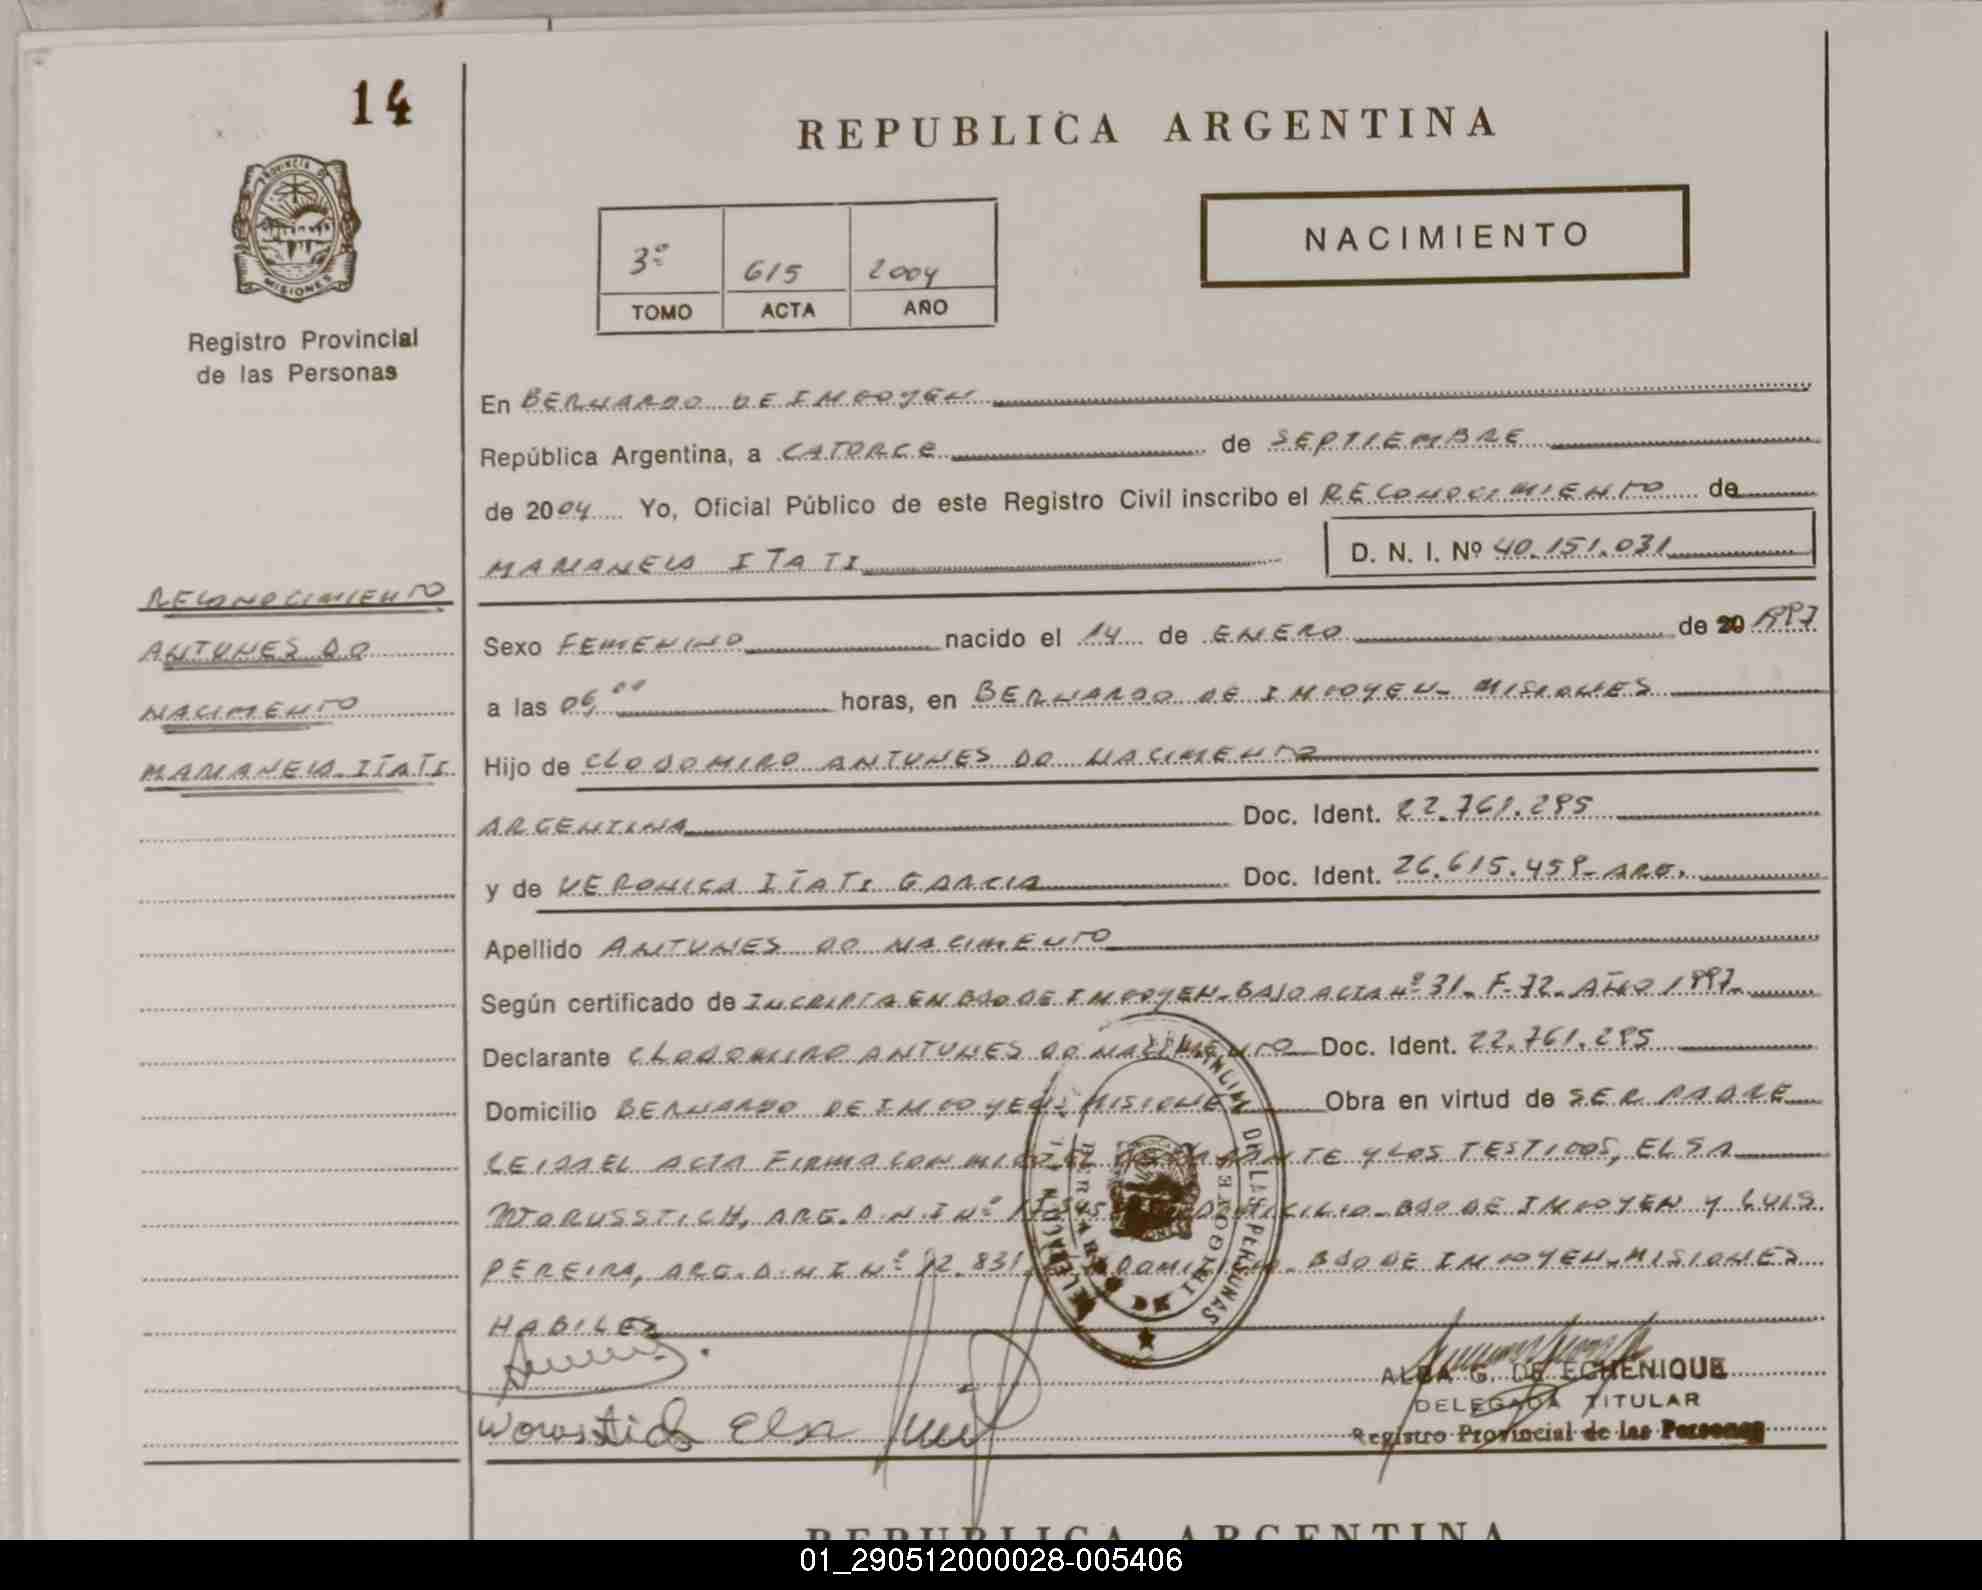 14
REPUBLICA ARGENTINA
PROVINCIA DE
MISIONES
NACIMIENTO
3º 615 2004
TOMO ACTA AÑO
Registro Provincial
de las Personas
En BERNARDO DE IRIGOYEN
República Argentina, a CATORCE de SEPTIEMBRE
de 2004 Yo, Oficial Público de este Registro Civil inscribo el RECONOCIMIENTO de
MARIANELA ITATI D. N. I. Nº 40.151.031
RECONOCIMIENTO
ANTUNES DO
NACIMENTO
MARIANELA ITATI
Sexo FEMENINO nacido el 14 de ENERO de 20 1997
a las 06,00 horas, en BERNARDO DE IRIGOYEN - MISIONES
Hijo de CLODOMIRO ANTUNES DO NACIMENTO
ARGENTINA Doc. Ident. 22.761.295
y de VERONICA ITATI GARCIA Doc. Ident. 26.615.459 - ARG.
Apellido ANTUNES DO NACIMENTO
Según certificado de INCRIPTA EN BDO DE IRIGOYEN - BAJO ACTA Nº 31 - F. 72 - AÑO 1997 -
Declarante CLODOMIRO ANTUNES DO NACIMENTO Doc. Ident. 22.761.295
Domicilio BERNARDO DE IRIGOYEN - MISIONES Obra en virtud de SER PADRE
LEIDA EL ACTA FIRMA CONMIGO EL DECLARANTE Y LOS TESTIGOS, ELSA
WORUSSTICH, ARG. D.N.I Nº DOMICILIO - BDO DE IRIGOYEN Y LUIS
PEREIRA, ARG. D.N.I Nº 12.831 DOMICILIO - BDO DE IRIGOYEN - MISIONES
HABILES
DE LAS PERSONAS
BERNARDO DE IRIGOYEN
Worusstich Elsa
ALBA G. DE ECHENIQUE
DELEGADA TITULAR
Registro Provincial de las Personas
REPUBLICA ARGENTINA
01_290512000028-005406